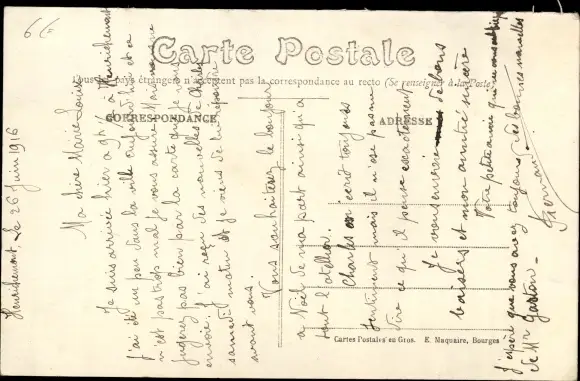 66
Carte Postale
Tous les pays étrangers n'acceptent pas la correspondance au recto (Se renseigner à la Poste)
CORRESPONDANCE
ADRESSE
Henrichemont, Le 26 Juin 1916
Ma chère Marie Louise
Je suis arrivée hier à 9h 1/2 à Henrichemont
J'ai été un peu dans la ville aujourd'hui et ce
n'est pas trop mal je vous assure Mais vous
jugerez pas bien par la carte que je vous
envoie. J'ai reçu des nouvelles de Charles
samedi matin et je viens de lui répondre
avant vous.
Vous souhaiterez le bonjour
à Noël de ma part ainsi qu'à
tout l'atelier.
Charles écrit toujours
gentiment mais il n'ose pas me
dire ce qu'il pense exactement
Je vous envoie de bons
baisers et mon amitié sincère
Votre petite amie qui
J'espère que vous avez toujours des bonnes nouvelles
de Mr Gaston -
Cartes Postales en Gros. E. Maquaire, Bourges